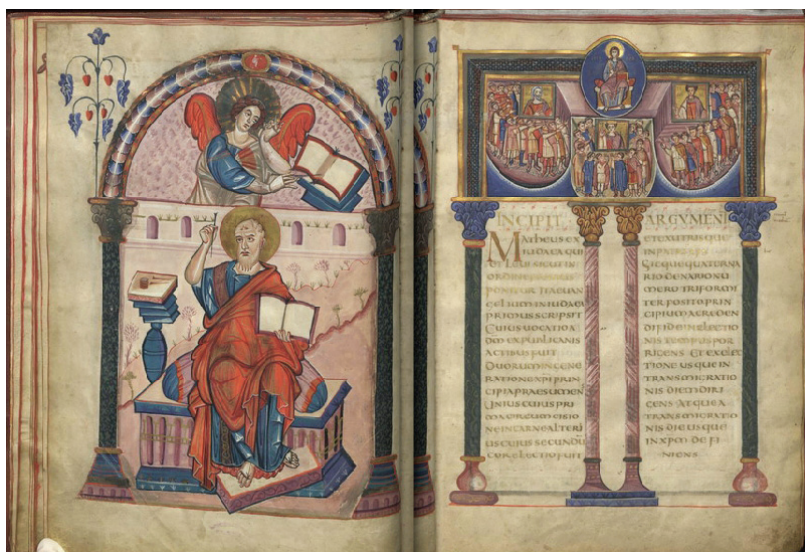 INCIPIT
MATHEUS EX
IUDAEA QUI
ET LEUI SICUT IN
ORDINE PRIMUS
PONITUR ITA EUAN
GELIUM IN IUDAEA
PRIMUS SCRIPSIT
CUIUS UOCATIO AD
DM EX PUBLICANIS
ACTIBUS FUIT
DUORUM IN GENE
RATIONE XPI PRIN
CIPIA PRAESUMENS
UNIUS CUIUS PRI
MA CIRCUMCISIO
NE IN CARNE ALTERI
US CUIUS SECUNDU
COR ELECTIO FUIT
ARGVMENT
ET EX UTRISQUE
SICQUE QUATERNA
RIO DENARIO NU
MERO TRIFORMI
TER POSITO PRIN
CIPIUM A CREDEN
DI FIDE IN ELECTIO
NIS TEMPUS POR
RIGENS ET EX ELEC
TIONE USQUE IN
TRANSMIGRATIO
NIS DIEM DIRI
GENS ATQUE A
TRANSMIGRATIO
NIS DIE USQUE
IN XPM DEFI
NIENS